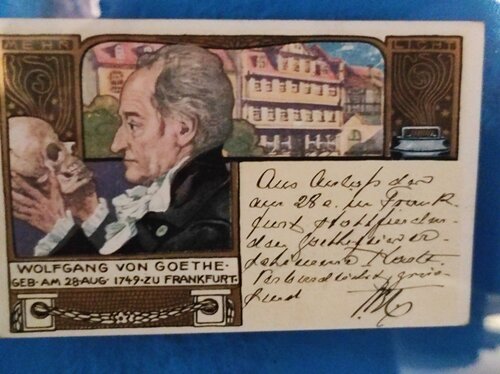 MEHR LICHT
WOLFGANG VON GOETHE·
GEB·AM 28·AUG· 1749·ZU FRANKFURT·
Aus Anlass der
am 28 a. in Frank
furt stattfinden-
den Goethefeier er-
schienene Karte.